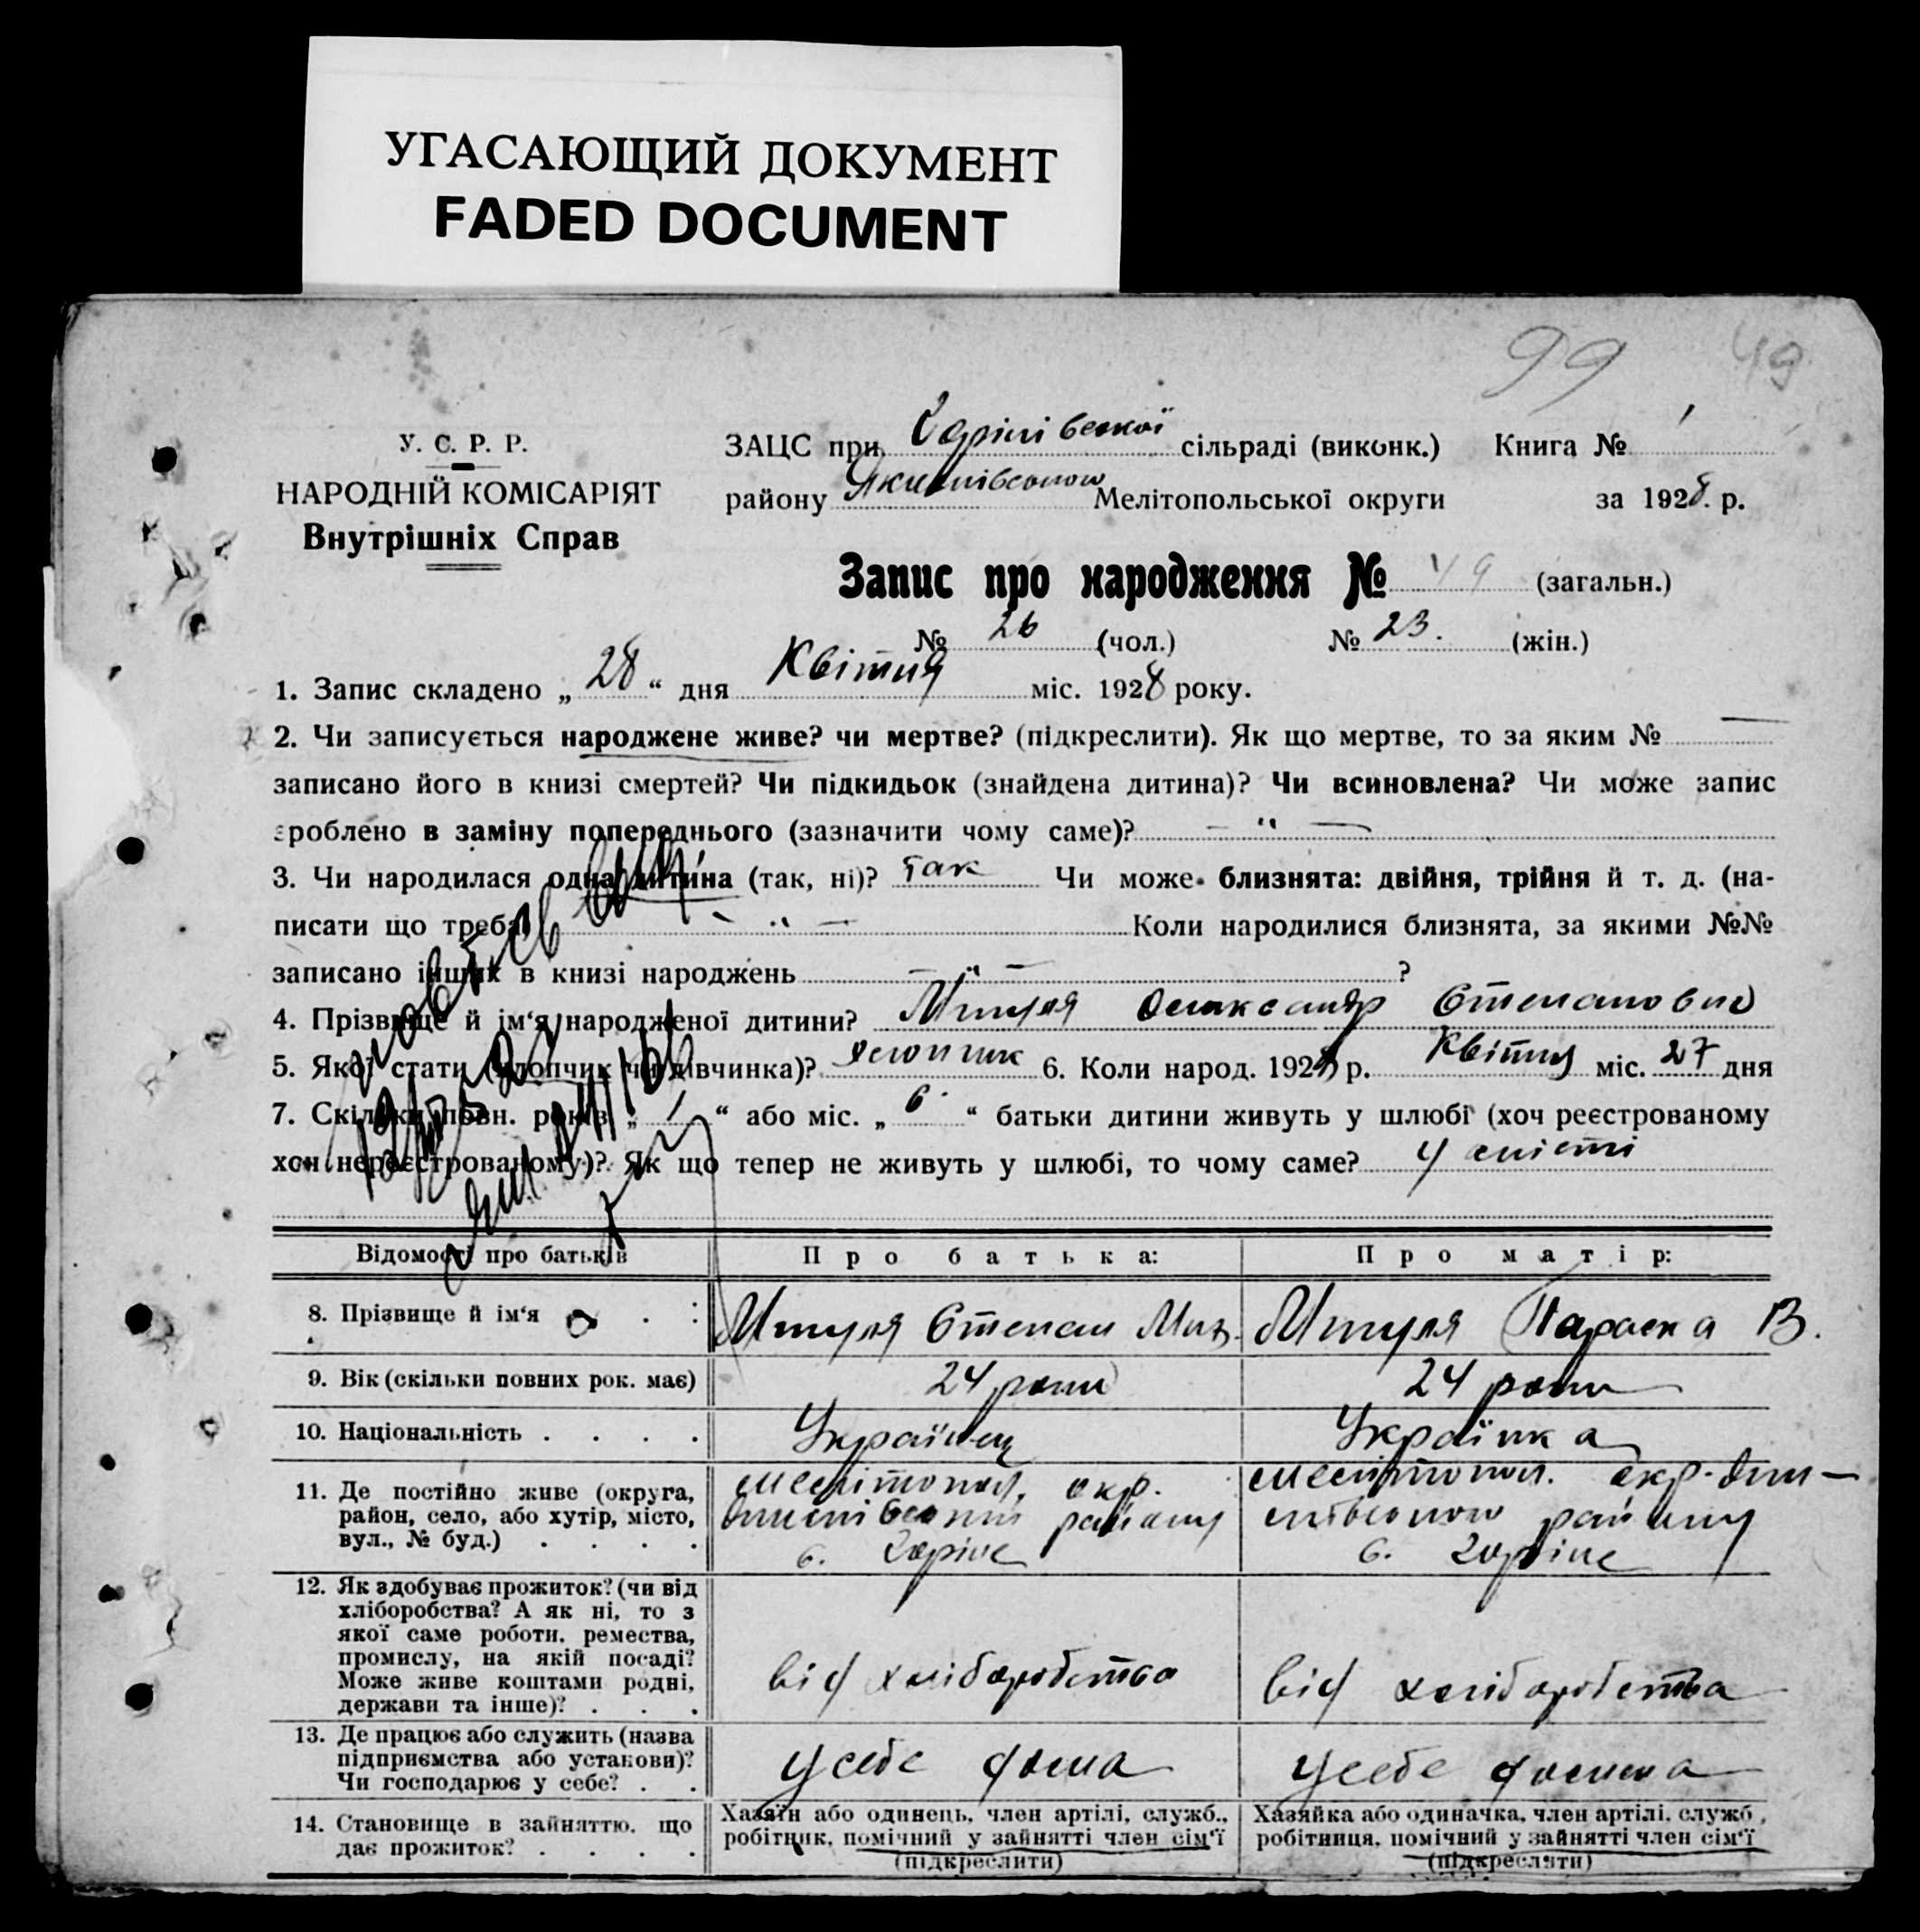 УГАСАЮЩИЙ ДОКУМЕНТ
FADED DOCUMENT
99 49
У. С. Р. Р.
НАРОДНІЙ КОМІСАРІЯТ
Внутрішніх Справ
ЗАЦС при сільраді (виконк.) Книга № 1
району Мелітопольської округи за 1928 р.
Запис про народження № 49 (загальн.)
№ 26 (чол.) № 23. (жін.)
1. Запис складено „ 28 “ дня Квітня міс. 1928 року.
2. Чи записується народжене живе? чи мертве? (підкреслити). Як що мертве, то за яким № —
записано його в книзі смертей? Чи підкидьок (знайдена дитина)? Чи всиновлена? Чи може запис
зроблено в заміну попереднього (зазначити чому саме)? — " —
3. Чи народилася одна дитина (так, ні)? так Чи може близнята: двійня, трійня й т. д. (на-
писати що треба) — " — Коли народилися близнята, за якими №№
записано інших в книзі народжень — " — ?
4. Прізвище й ім‘я народженої дитини? Олександр Степанович
5. Якої стати (хлопчик чи дівчинка)? хлопчик 6. Коли народ. 1928 р. Квітня міс. 27 дня
7. Скільки повн. років „ 1 “ або міс. „ 6 “ батьки дитини живуть у шлюбі (хоч реєстрованому
хоч нереєстрованому)? Як що тепер не живуть у шлюбі, то чому саме? У
Відомості про батьків Про батька: Про матір:
8. Прізвище й ім‘я . : Степан Параска В.
9. Вік (скільки повних рок. має) 24 роки 24 роки
10. Національність . . . . Українец Українка
11. Де постійно живе (округа,
район, село, або хутір, місто,
вул., № буд.) . . . .
Мелітопол. окр.
району
с.
Мелітопол. окр.
району
с.
12. Як здобуває прожиток? (чи від
хліборобства? А як ні, то з
якої саме роботи, ремества,
промислу, на якій посаді?
Може живе коштами родні,
держави та інше)? . . .
від хліборобства від хліборобства
13. Де працює або служить (назва
підприємства або установи)?
Чи господарює у себе? . .
у себе дома у себе дома
14. Становище в зайняттю, що
дає прожиток? . . . .
Хазяїн або одинець, член артілі, служб.,
робітник, помічний у зайнятті член сім‘ї
(підкреслити)
Хазяйка або одиначка, член артілі, служб.,
робітниця, помічний у зайнятті член сім‘ї
(підкреслити)